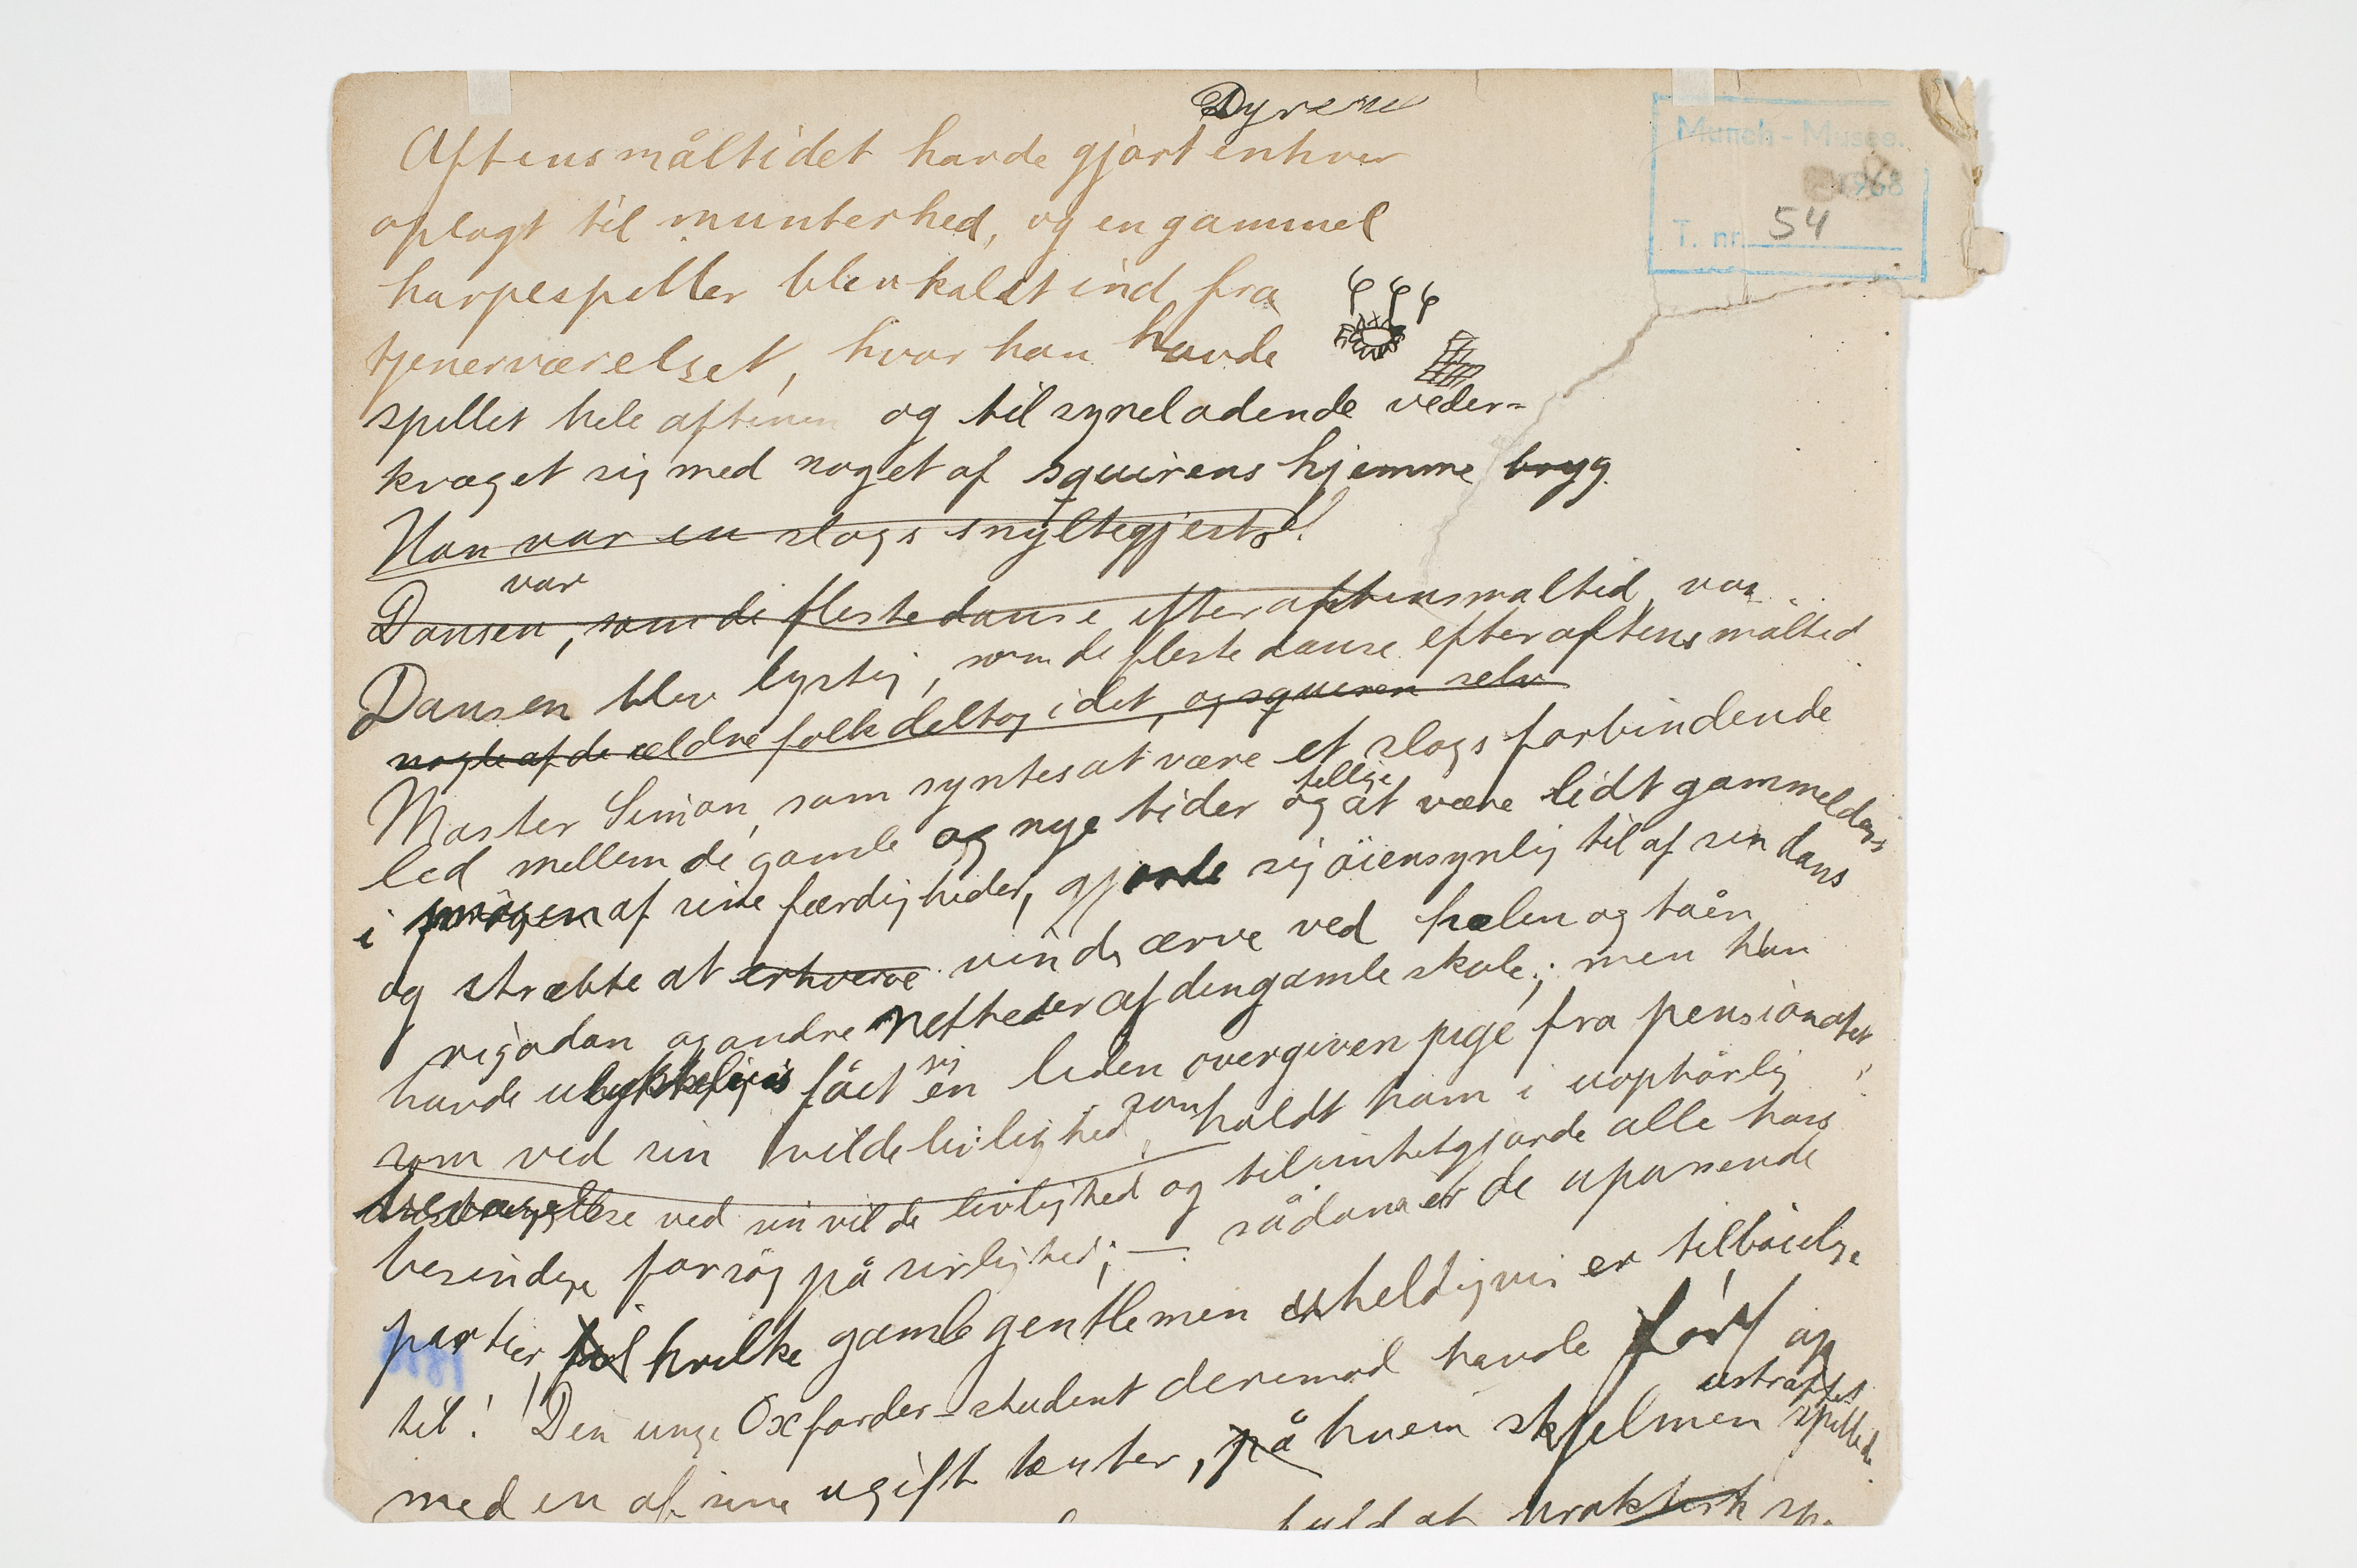 Dyrene
Aftensmåltidet havde gjort enhver
oplagt til munterhed, og en gammel
harpespiller blev kaldt ind fra
tjenerværelset, hvor han havde
spillet hele aftenen og tilsyneladende veder-
kvæget sig med noget af squirens hjemme bryg.
Han var en slags snyltegjest
var
Dansen, som de fleste danse efter aftensmaltid, var
Dansen blev lystig, som de fleste danse efter aftensmåltid
nogle af de ældre folk deltog i det, og squiren selv
Master Simon, som syntes at være et slags forbindende
led mellem de gamle og nye tider og at være lidt gammeldags
tillige
i af sine færdigheder, gjorde sig öiensynlig til af sin dans
og stræbte at erhverve vinde ærve ved hælen og tåen
rigadan og andre netheder af den gamle skole; men han
havde ulykkeligvis fået sig en liden overgiven pige fra pensionatet
som ved sin vilde livlighed som holdt ham i uophörlig
ved sin vilde livlighed og tilintetgjorde alle hans
besindige forsög på sirlighed; — sådana er de upassende
partier, til hvilke gamle gentlemen uheldigvis er tilböielige
til! Den unge Oxforder-student derimod havde fört op
med en af sine ugift tanter, på hvem skjelmen ustraffet spillede
fuld af
Munch-Musee.
1968
T. nr. 54